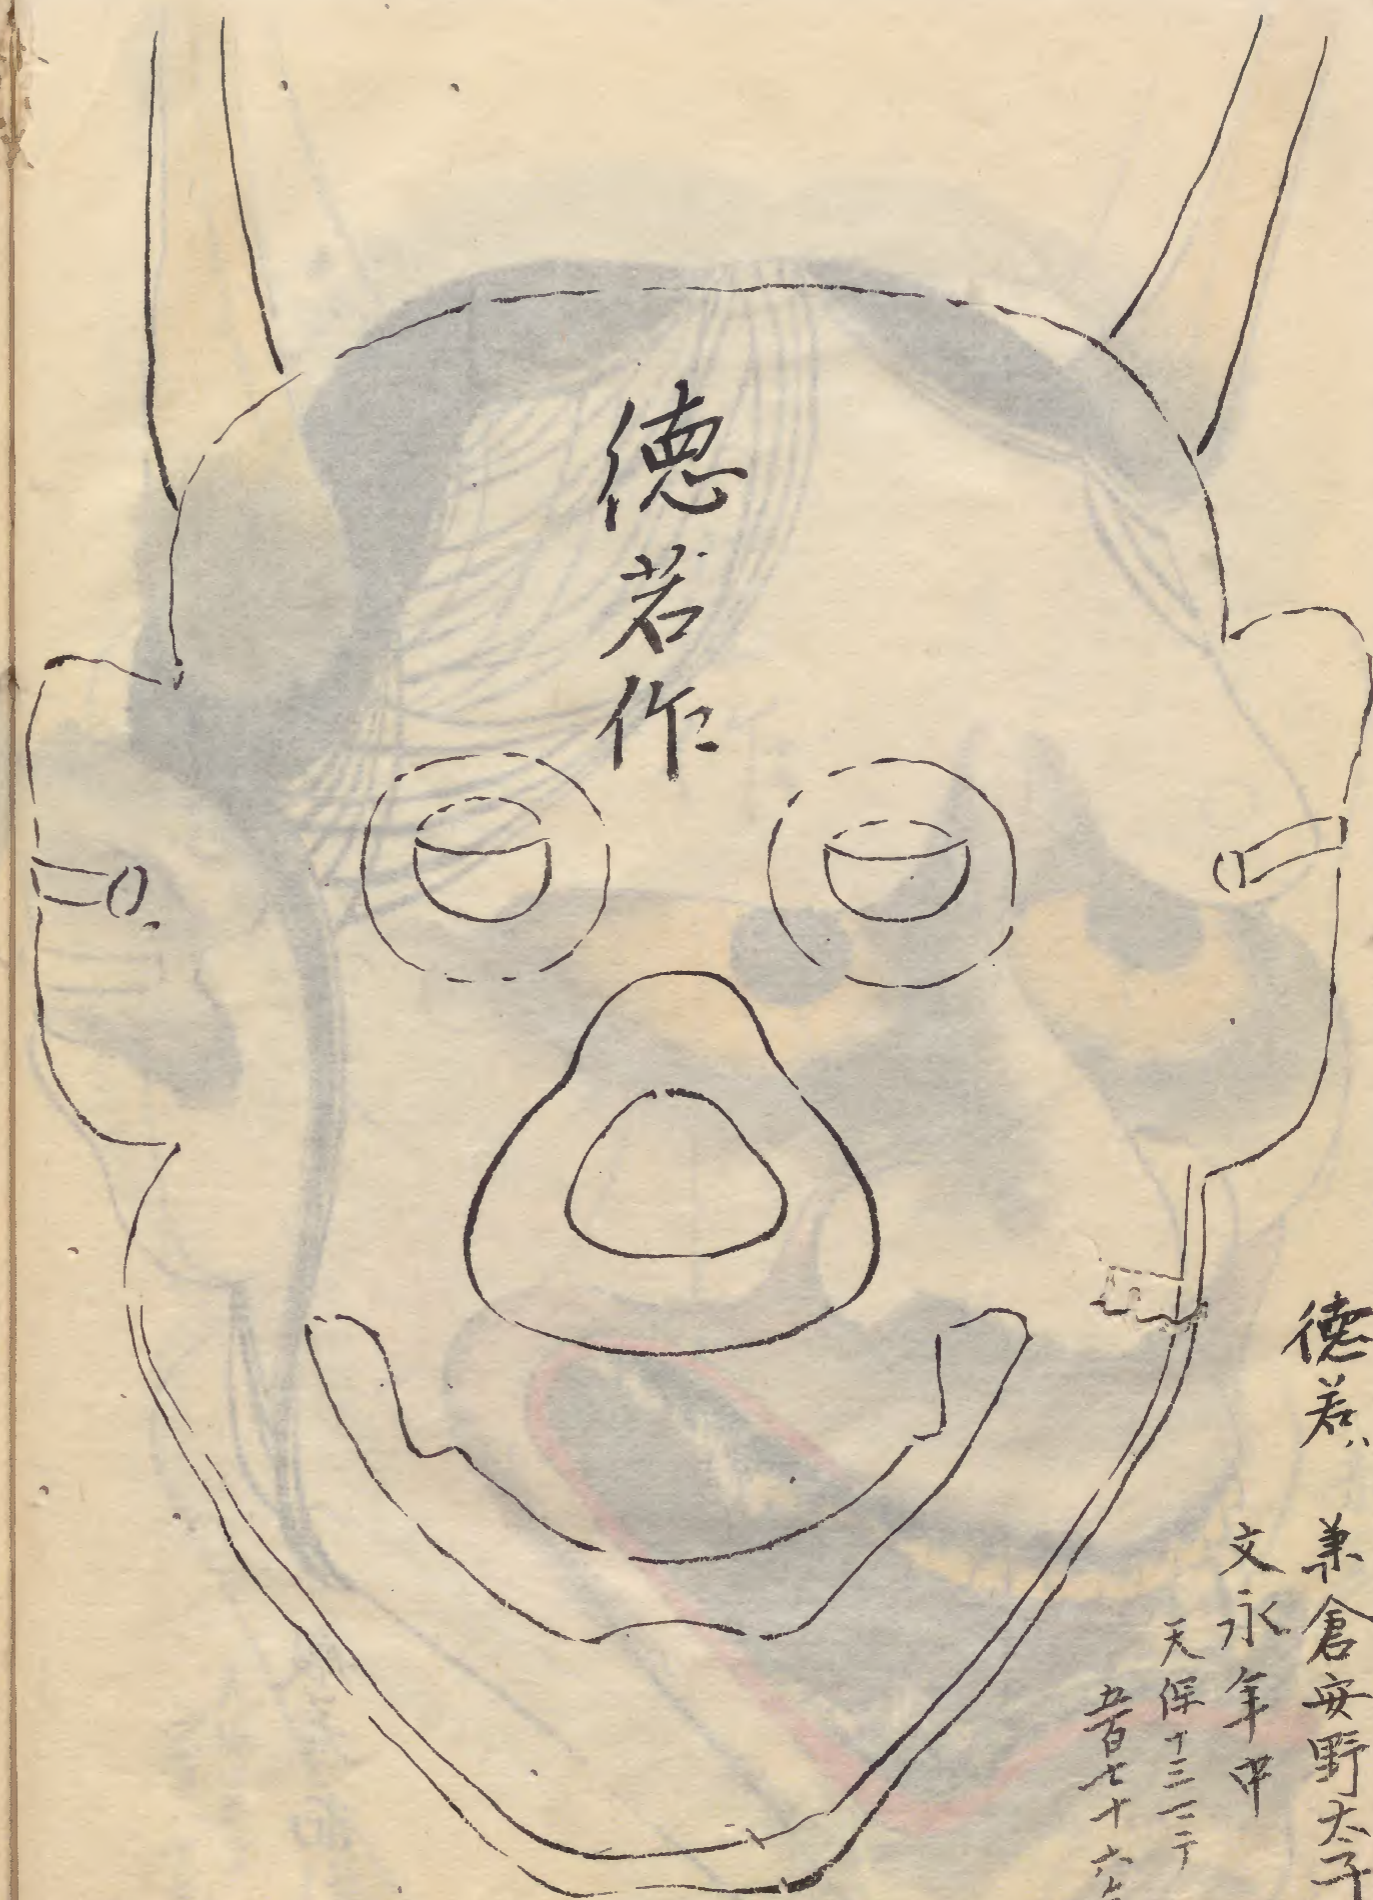 徳若作
徳若
倉安野太子
文永年中
天保十三
五百七十六